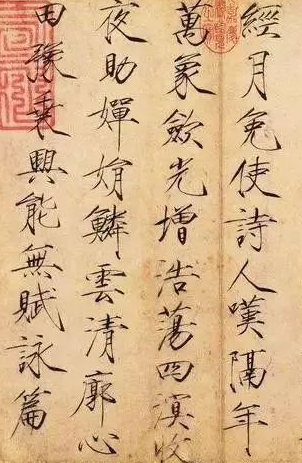 經月免使詩人嘆隔年
萬象歛光增浩蕩四溟收
夜助嬋娟鱗雲清廓心
田豫乘興能無賦詠篇